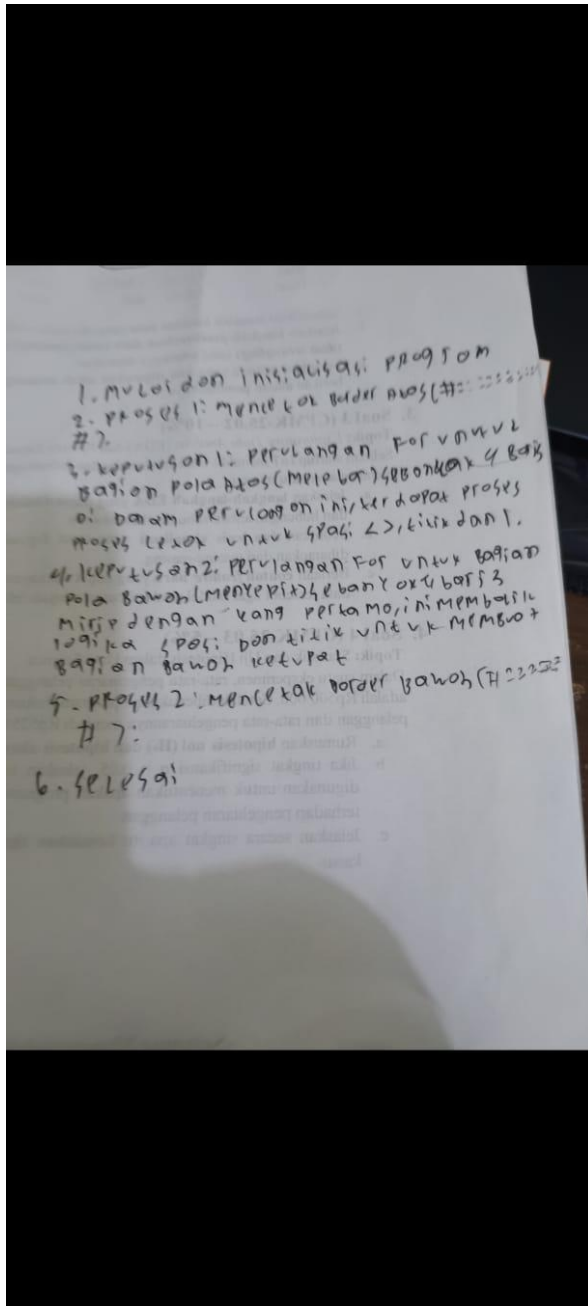 1. Mulai dan inisialisasi program
2. proses 1: mencetak Border Atas (#=========
#).
3. keputusan 1: perulangan For untuk
Bagian pola Atas (melebar) sebanyak 4 Baris
Di Dalam perulangan ini, terdapat proses
proses cetak untuk spasi <>, titik dan |.
4. keputusan 2: perulangan For untuk Bagian
pola Bawah (menyepit) sebanyak 4 baris
mirip dengan yang pertama, ini membalik
logika spasi dan titik untuk membuat
Bagian Bawah ketupat
5. proses 2: mencetak border Bawah (#=====
#):
6. selesai